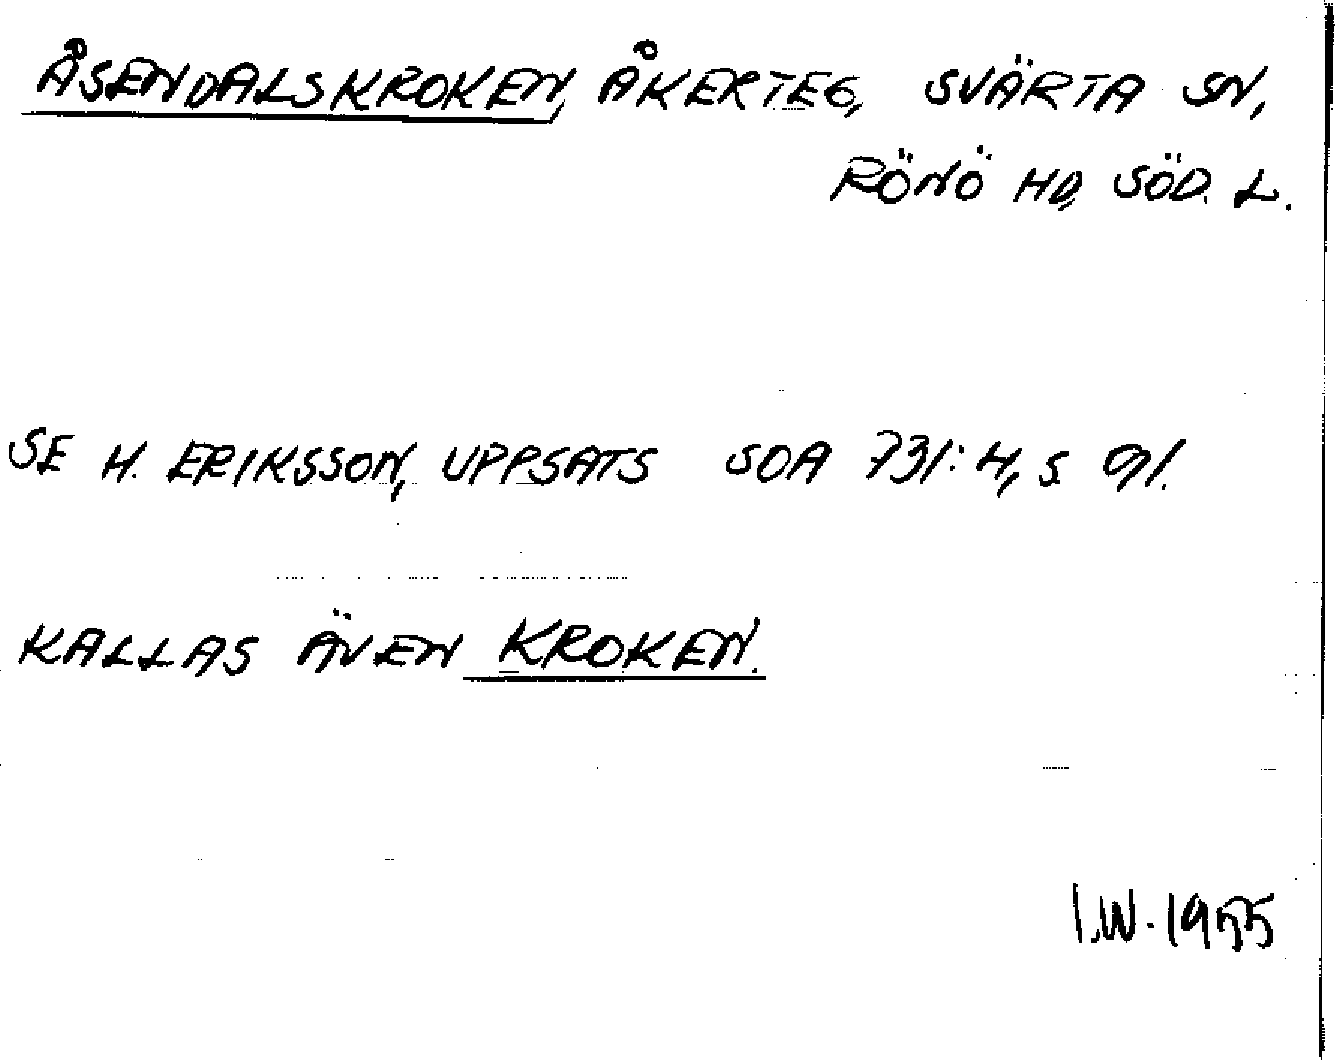 ÅSENDALSKROKEN, ÅKERTEG, SVÄRTA SN,
RÖNÖ HD, SÖD. L.
SE H. ERIKSSON, UPPSATS SOA 731:4, S. 91.
KALLAS ÄVEN KROKEN.
I.W. 1955